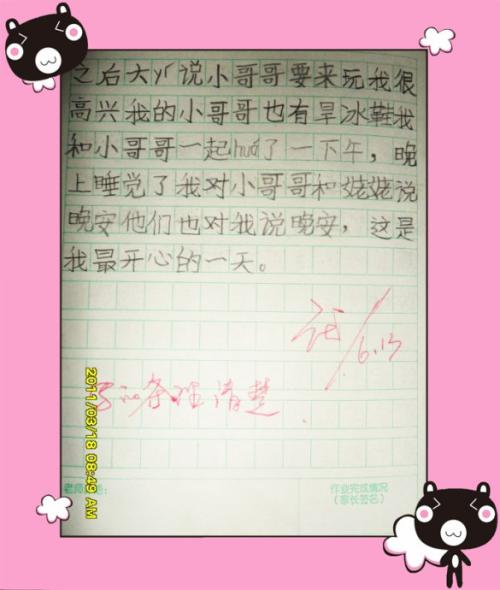 之后大yí说小哥哥要来玩我很
高兴我的小哥哥也有旱冰鞋我
和小哥哥一起huá了一下午，晚
上睡觉了我对小哥哥和姥姥说
晚安他们也对我说晚安，这是
我最开心的一天。
6.13
写的条理清楚
2011/03/18 08:49 AM
作业完成情况
（家长签名）